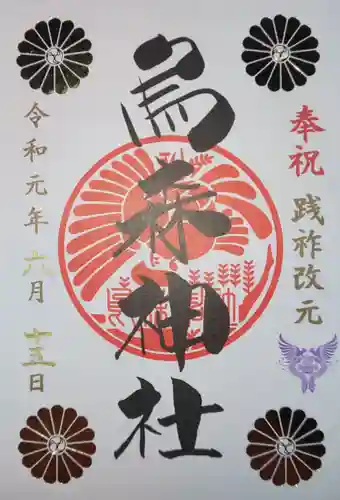 奉祝 践祚改元
烏森神社
令和元年六月十五日